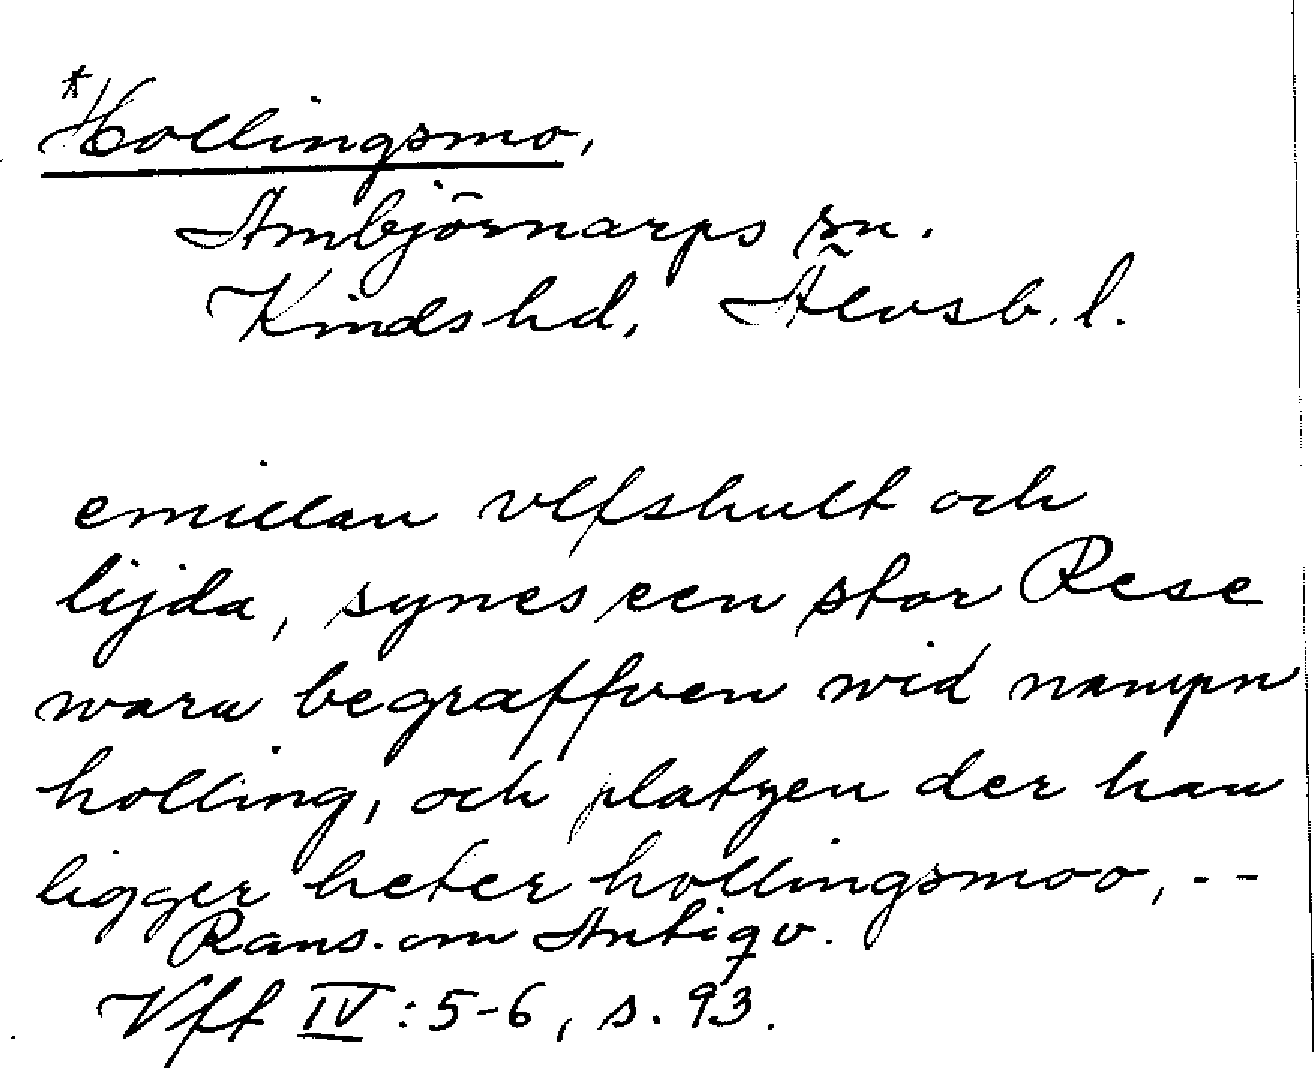 *Hollingsmo,
Ambjörnarps sn.
Kinds hd, Älvsb. l.
emillan vlfshult och
lijda, synes een stor Rese
wara begraffven wid nampn
holling, och platzen der han
ligger heter hollingsmoo, --
Rans. om Antiqv.
Vft IV: 5-6, s. 93.